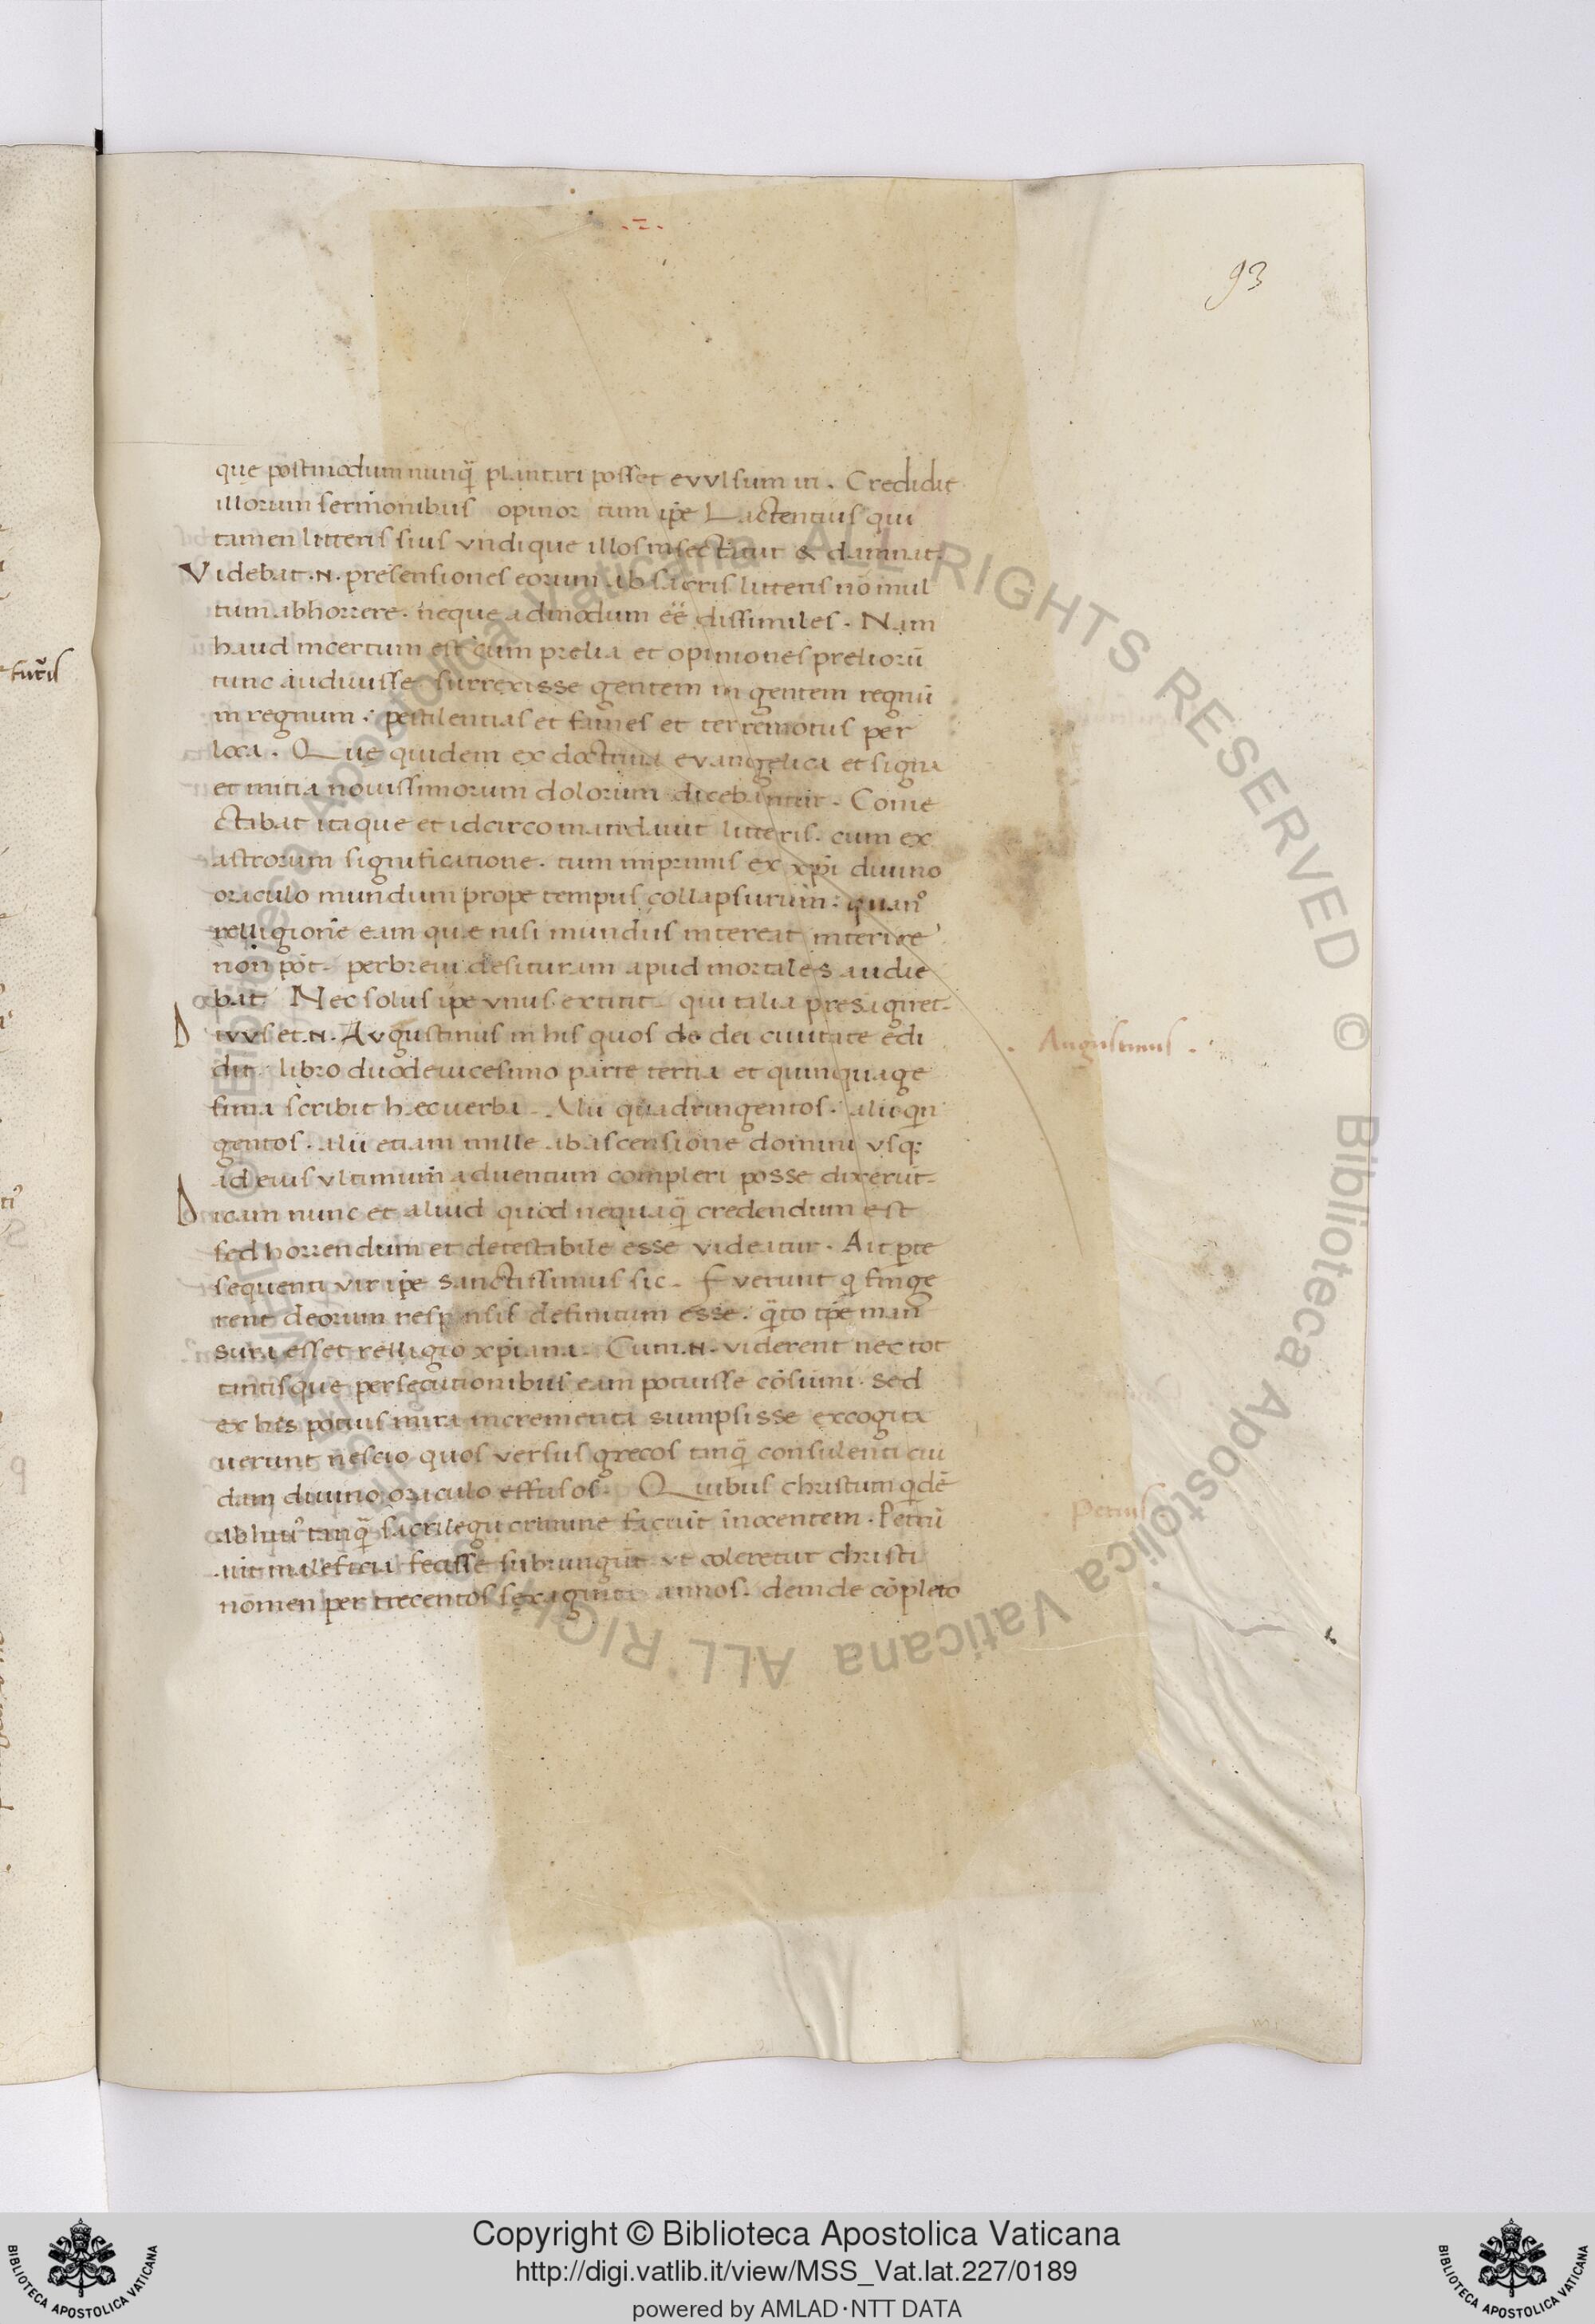 .z.
93
que postmodum nunq̃ plantari posset evvlsum iri. Credidit
illorum sermonibus opinor tum ip̃e Lactentius qui
tamen litteris suis vndique illos insectatur & damnat.
Videbat .N. presensiones eorum ab sacris litteris nõ mul
tum abhorrere. neque admodum eē dissimiles. Nam
haud incertum est cum prelia et opiniones preliorũ
tunc audiuisse. surrexisse gentem in gentem regnũ
in regnum. pestilentias et fames et terremotus per
loca. Que quidem ex doctrina evangelica et signa
et initia nouissimorum dolorum dicebantur. Conie
ctabat itaque et idcirco mandauit litteris. cum ex
astrorum significatione. tum inprimis ex xp̃i diuino
oraculo mundum prope tempus collapsurum. quan̊
relligionẽ eam que nisi mundus intereat interire
non põt. perbreui desituram apud mortales audie
bat Nec solus ip̃e vnus extitit qui talia presagiret.
Divvs et .N. Avgustinus in his quos de dei ciuitate edi
dit libro duodeuicesimo parte tertia et quinquage
sima scribit hec uerba. Alii quadringentos. alii q̃n
gentos. alii etiam mille ab ascensione domini vsq;
ad eius vltimum aduentum compleri posse dixerũt.
Dicam nunc et aliud quod nequaq̃ credendum est
sed horrendum et detestabile esse videatur. Ait p̃te
sequenti vir ip̃e sanctissimus sic. Fverunt q̃ finge
rent deorum responsis definitum esse. q̃to tp̃e man
sura esset relligio xp̃iana. Cum .N. viderent nec tot
tantisque persecutionibus eam potuisse cõsumi. sed
ex his potius mira incrementa sumpsisse excogita
uerunt nescio quos versus grecos tanq̃ consulenti cui
dam diuino oraculo effusos. Quibus christum q̃dẽ
ab hui᾽ tanq̃ sacrilegii crimine faciũt inocentem. Petrũ
aut maleficia fecisse subiungũt vt coleretur christi
nomen per trecentos sexaginta annos. deinde cõpleto
. Augustinus .
Petrus
Copyright © Biblioteca Apostolica Vaticana
http://digi.vatlib.it/view/MSS_Vat.lat.227/0189
powered by AMLAD·NTT DATA
BIBLIOTECA APOSTOLICA VATICANA
BIBLIOTECA APOSTOLICA VATICANA
© Biblioteca Apostolica Vaticana ALL RIGHTS RESERVED © Biblioteca Apostolica Vaticana ALL RIGHTS RESERVED